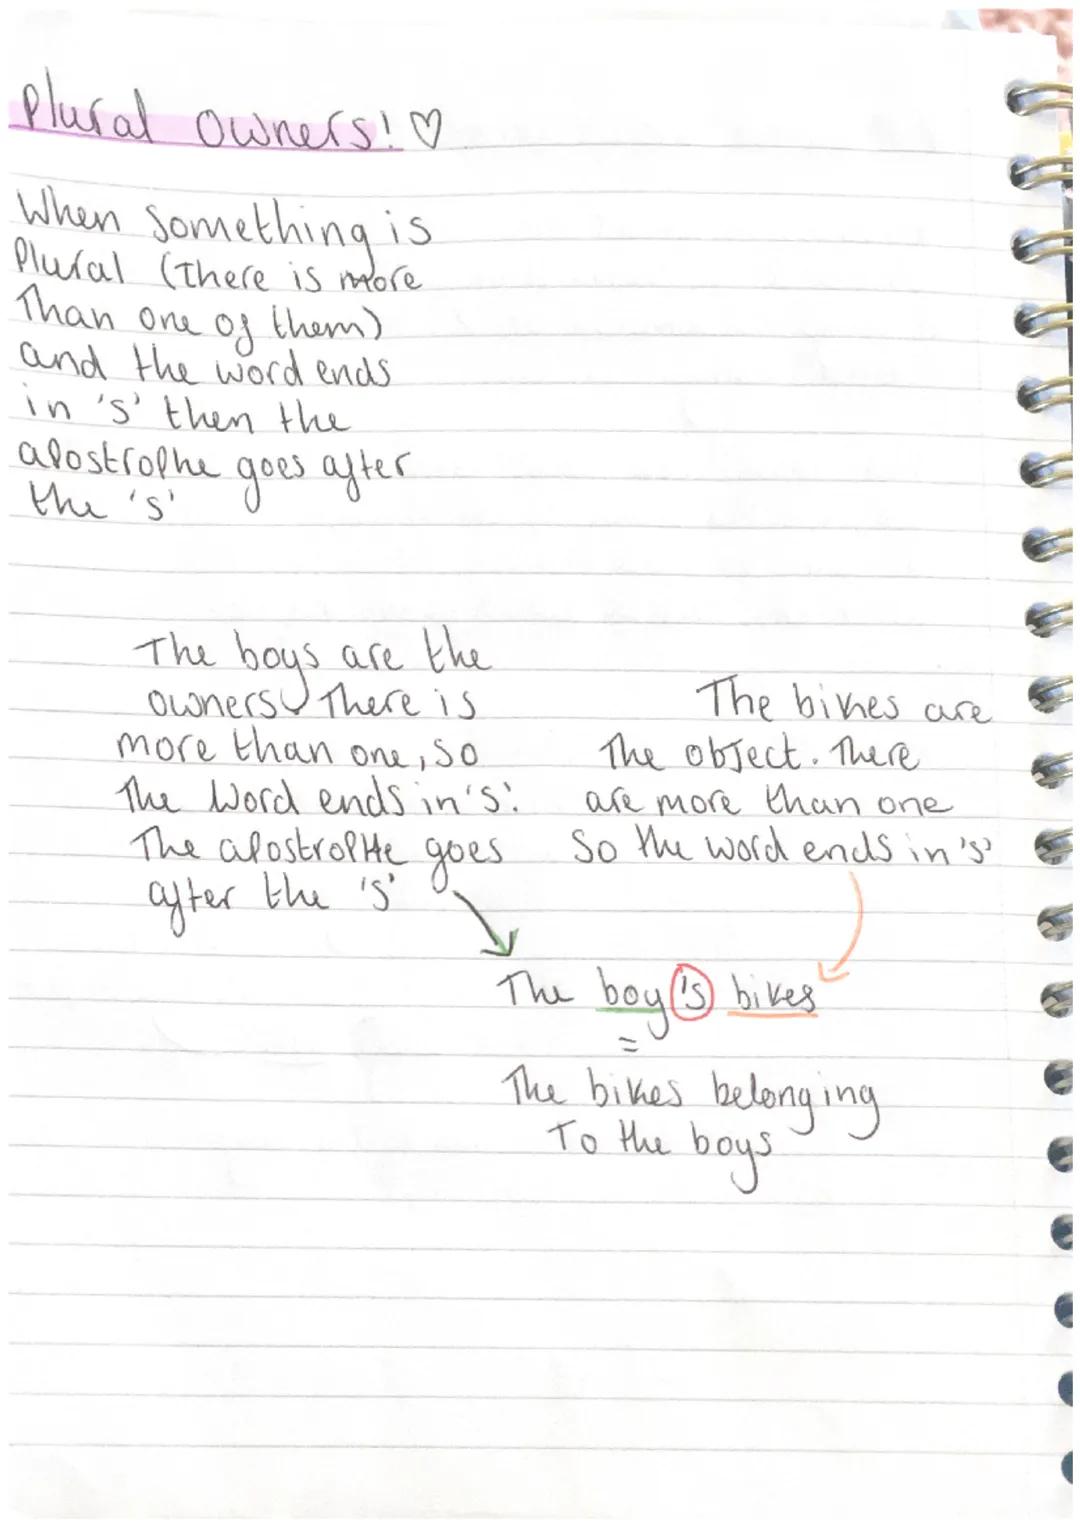 Plural owners! ♡
When something is
Plural (There is more
Than one of them)
and the word ends
in 's' then the
apostrophe goes after
the 's'
The boys are the
owners There is
more than one, so
The Word ends in 's'.
The apostrophe goes
after the 's'
The bikes are
The object. There
are more than one
So the word ends in 's'
The boy's bikes
=
The bikes belonging
To the boys